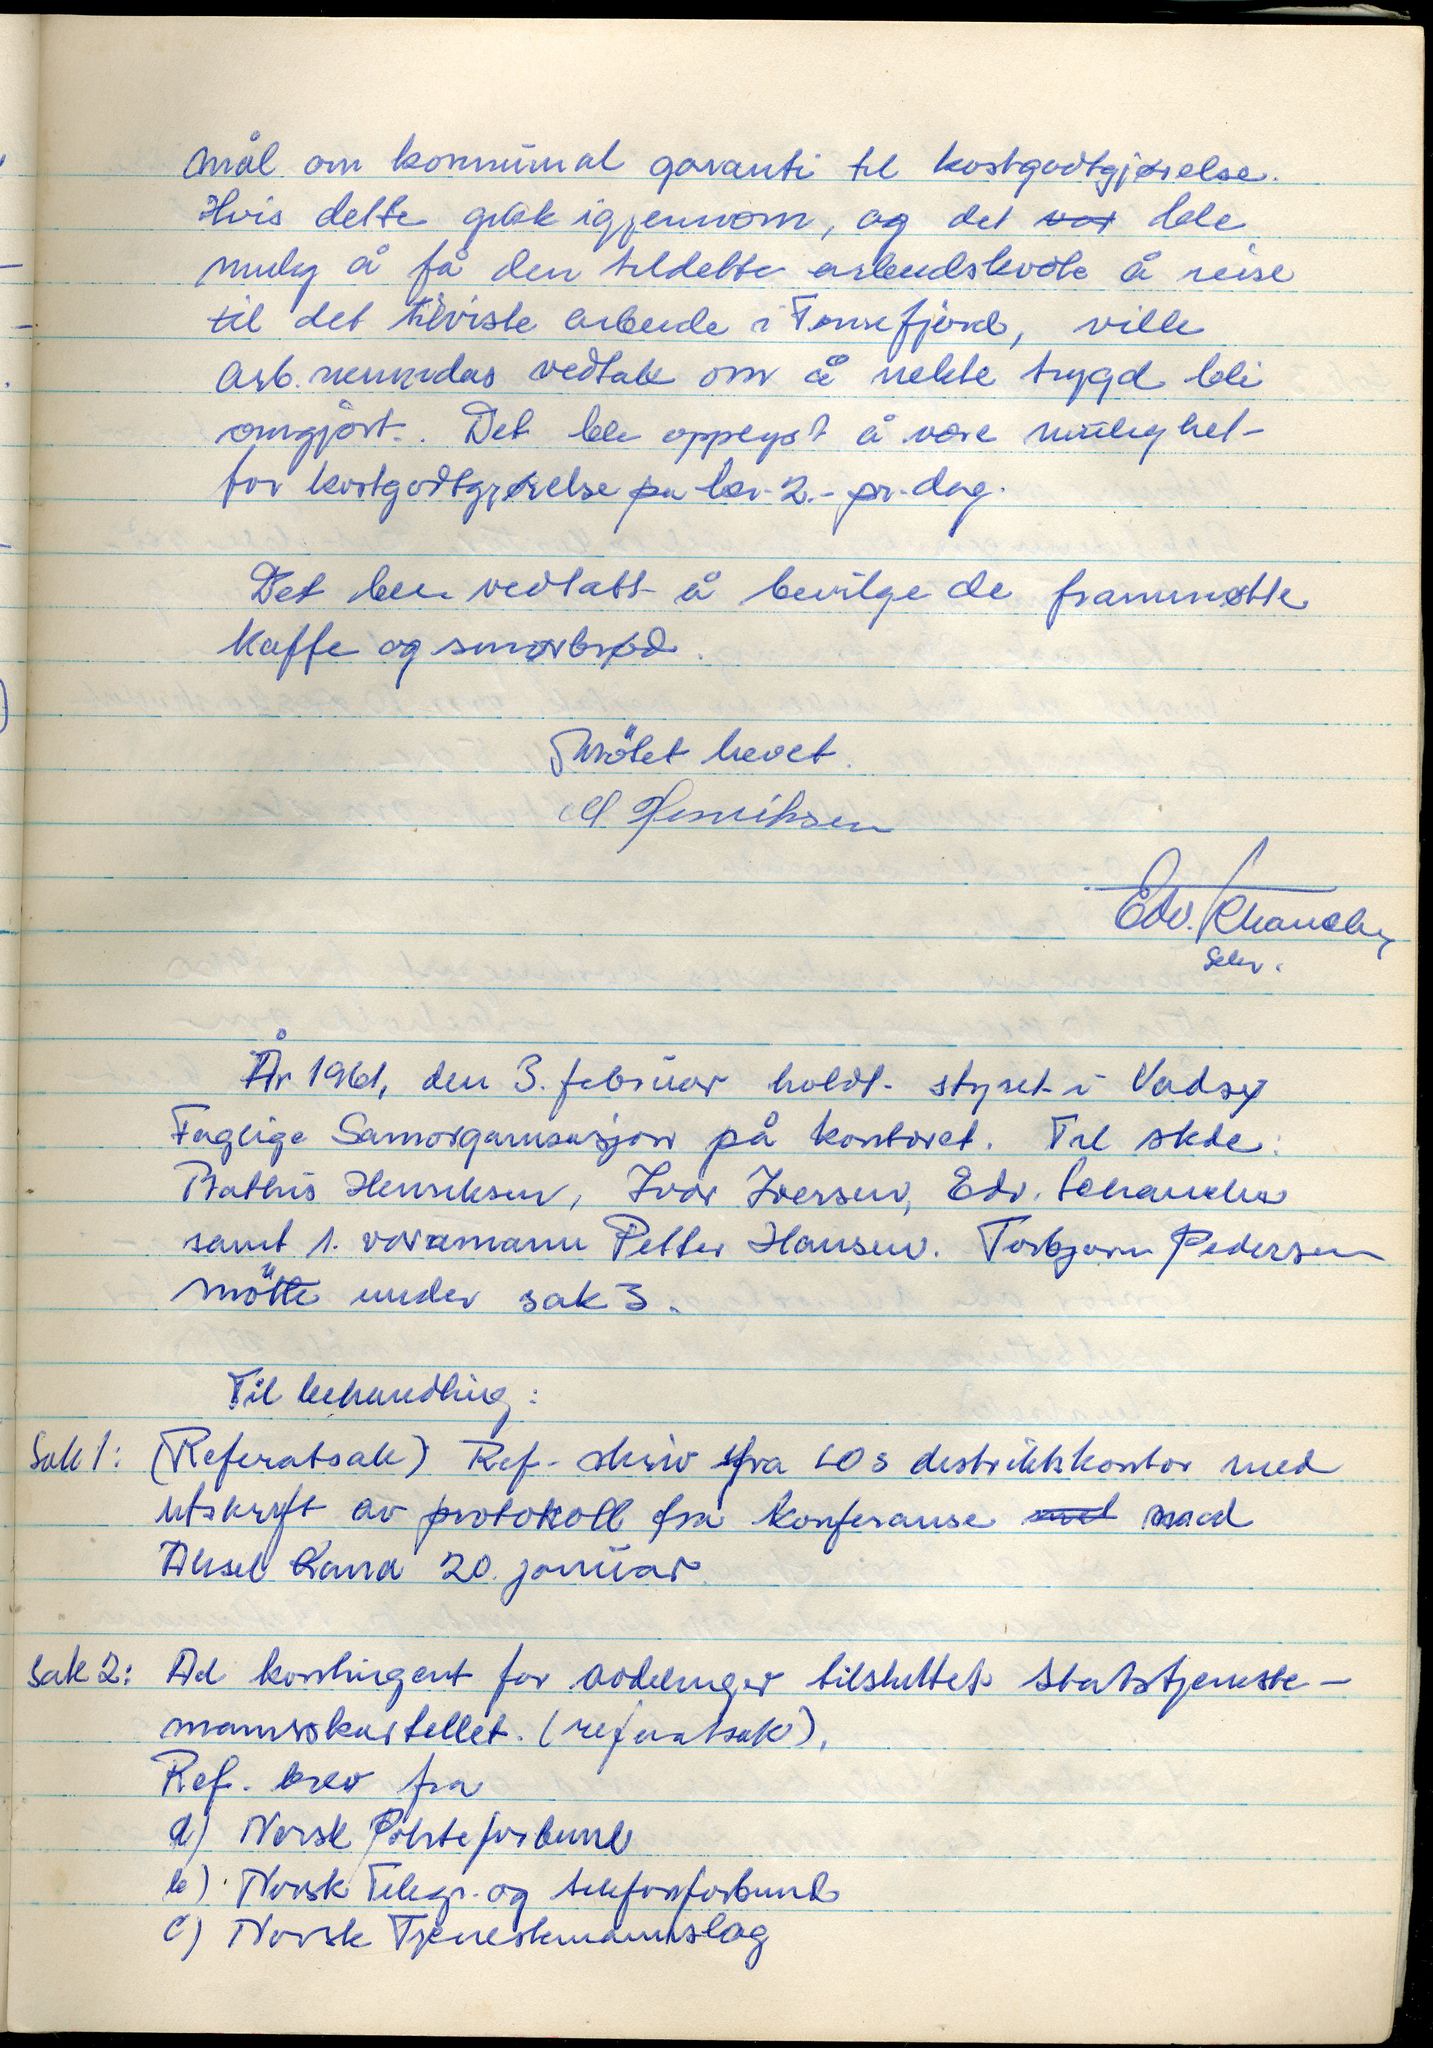 mål om kommunal garanti til kostgodtgjørelse.
Hvis dette gikk igjennom, og det var ble
mulig å få den tildelte arbeidskvote å reise
til det tilviste arbeide i fjord, ville
arb.nemndas vedtak om å nekte trygd bli
omgjört. Det ble opplyst å være mulighet
for kostgodtgjørelse på kr. 2.- pr. dag.
Det ble vedtatt å bevilge de frammøtte
kaffe og smørbrød.
Mötet hevet.
M Henriksen
Edv. Schancke
sekr.
År 1961, den 3. februar holdt styret i Vadsø
Faglige Samorganisasjon på kontoret. Til stede:
Mathis Henriksen, Ivar Iversen, Edv. Schancke
samt 1. varamann Petter Hansen. Torbjørn Pedersen
mötte under sak 3.
Til behandling:
Sak 1: (Referatsak) Ref. skriv fra LOs distriktskontor med
utskrift av protokoll fra konferanse med med
Aksel 20. januar.
Sak 2: Ad kontingent for avdelinger tilsluttet Statstjeneste-
mannskartellet. (referatsak).
Ref. brev fra
a) Norsk Postforbund
b) Norsk Telegr. og telefonforbund
c) Norsk Tjenestemannslag